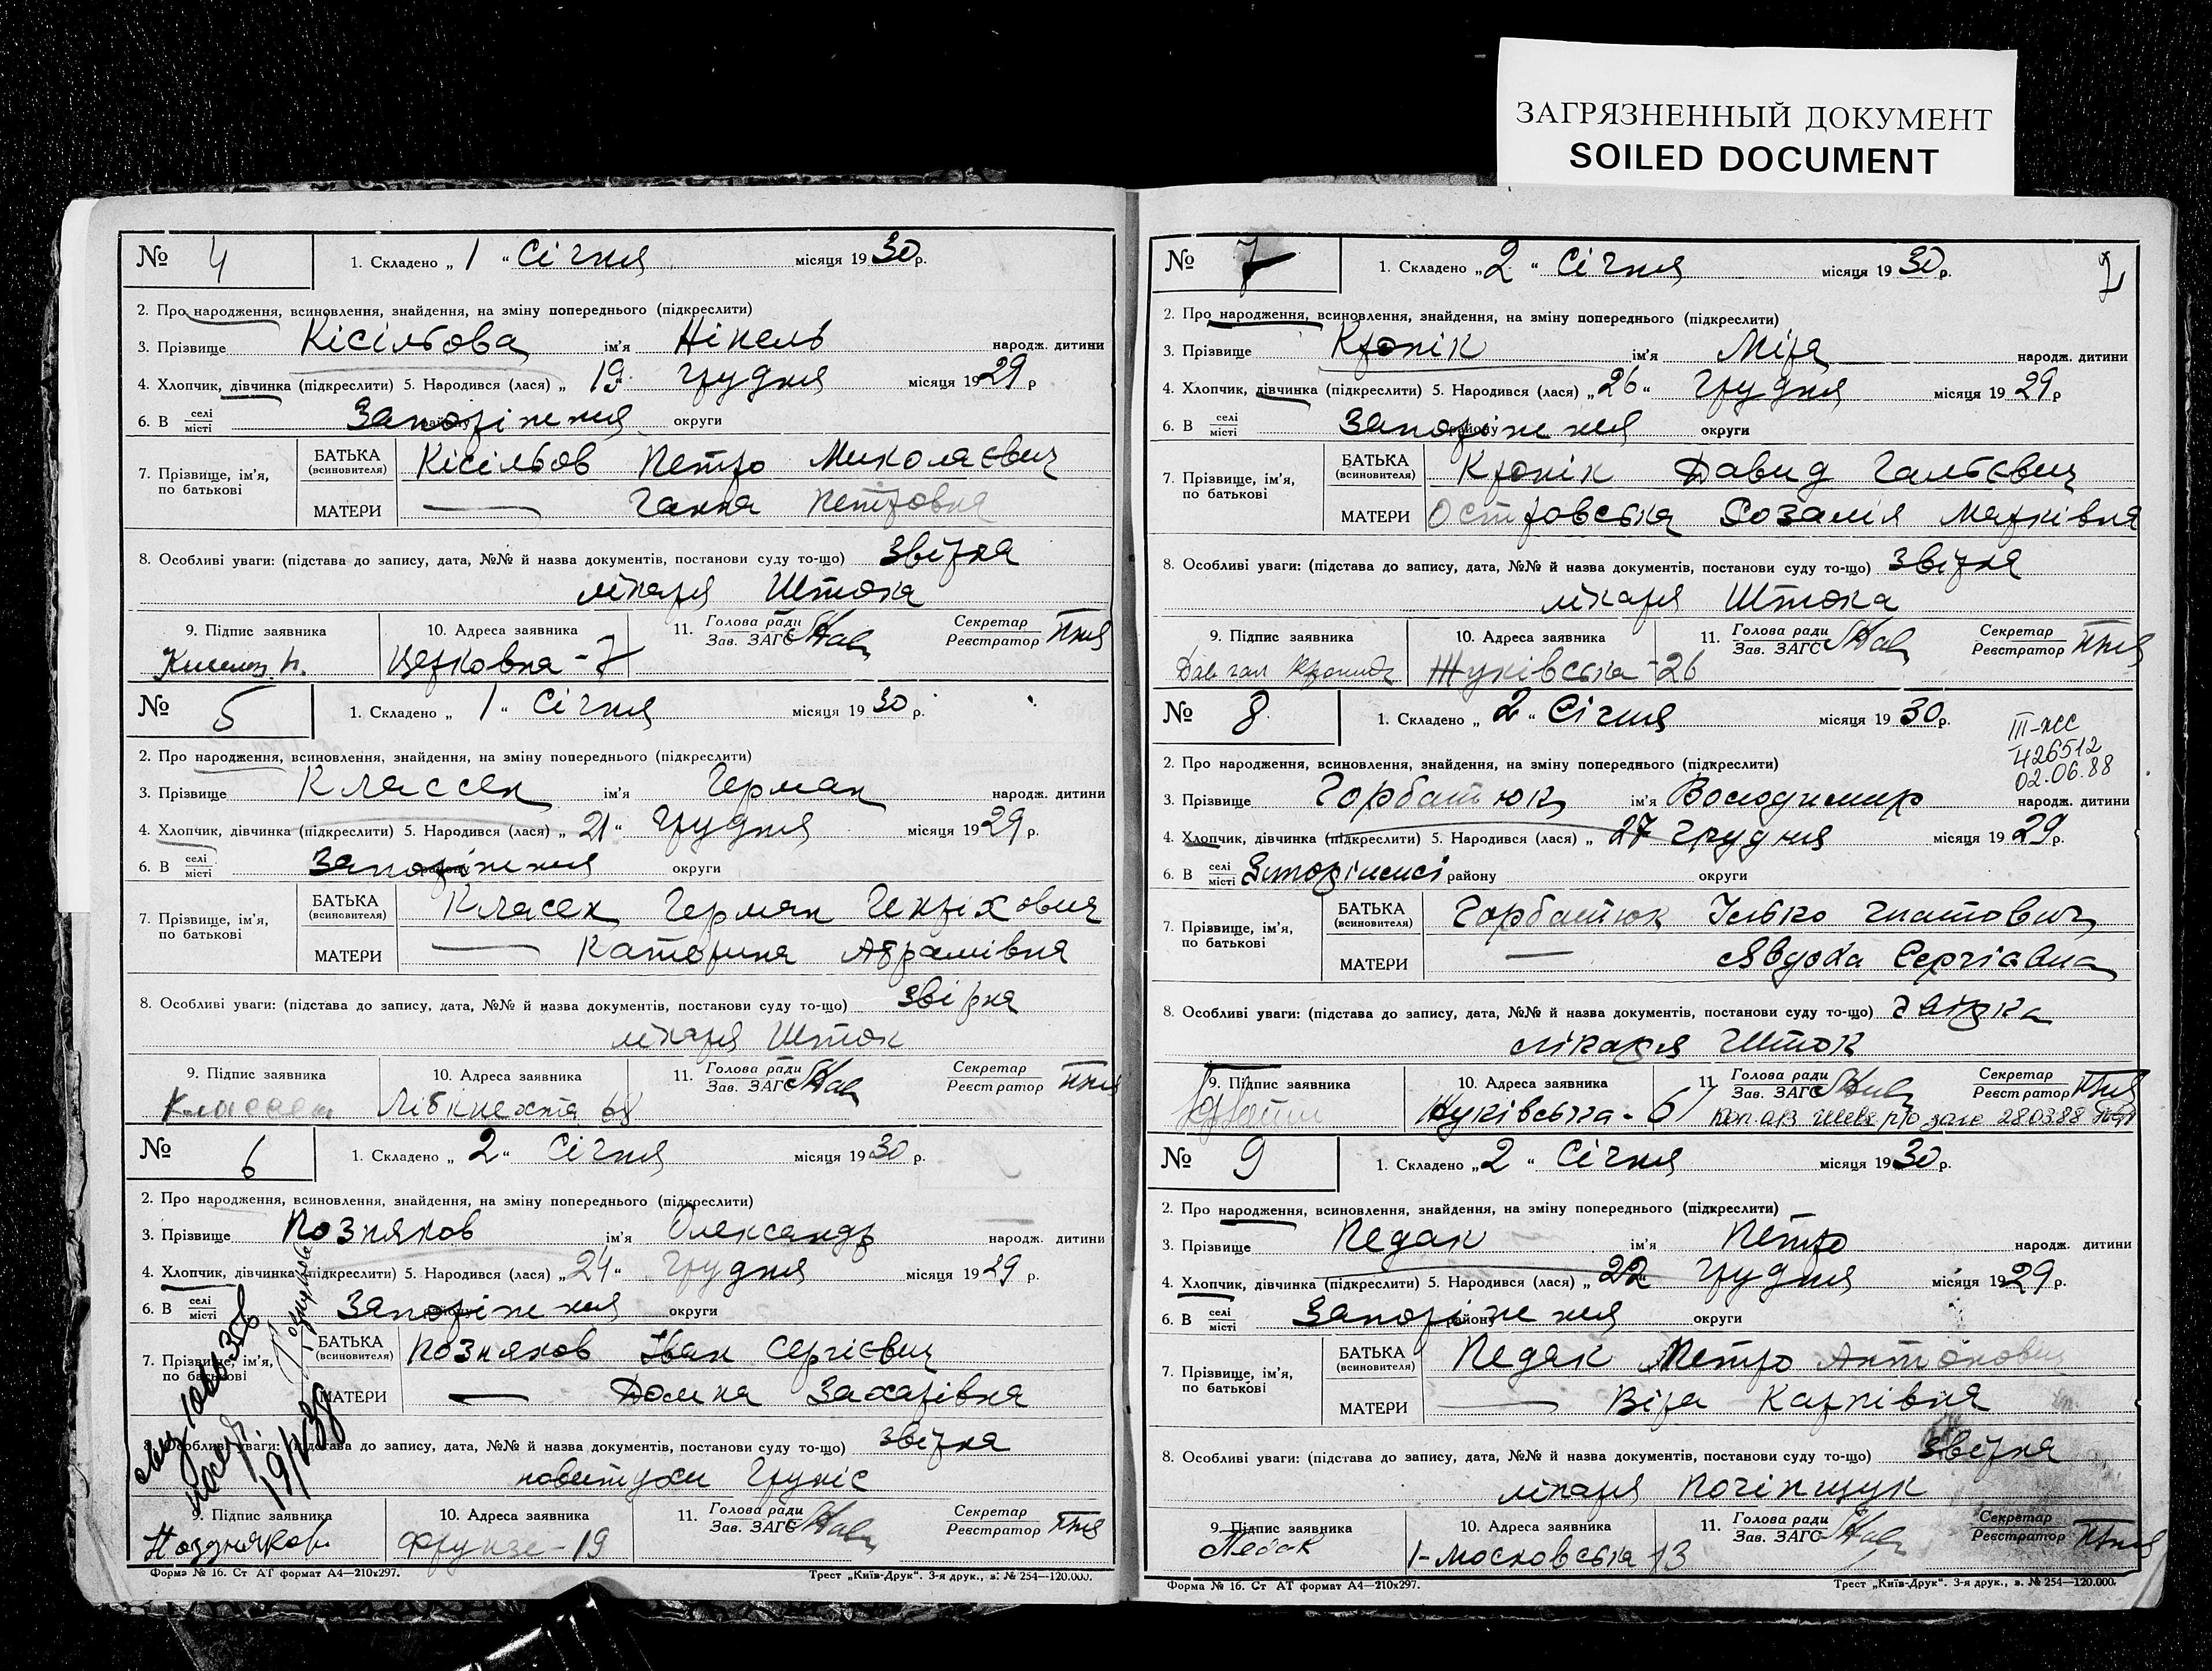 ЗАГРЯЗНЕННЫЙ ДОКУМЕНТ
SOILED DOCUMENT
№ 4
1. Складено „ 1 " Січня місяця 1930 р.
2. Про народження, всиновлення, знайдення, на зміну попереднього (підкреслити)
3. Прізвище Кісільова ім'я Нінель народж. дитини
4. Хлопчик, дівчинка (підкреслити) 5. Народився (лася) „ 19 грудня місяця 1929 р
6. В селі місті Запоріжжя району округи
7. Прізвище, ім'я, по батькові
БАТЬКА (всиновителя) Кісільов Петро Миколаєвич
МАТЕРИ — Ганна Петровна
8. Особливі уваги: (підстава до запису, дата, №№ й назва документів, постанови суду то-що) Звірка
лікаря Штока
9. Підпис заявника 10. Адреса заявника 11. Голова ради Зав. ЗАГС Секретар Реєстратор
Церковна - 7
№ 5
1. Складено „ 1 " Січня місяця 1930 р.
2. Про народження, всиновлення, знайдення, на зміну попереднього (підкреслити)
3. Прізвище Классен ім'я Герман народж. дитини
4. Хлопчик, дівчинка (підкреслити) 5. Народився (лася) „ 21 " Грудня місяця 1929 р.
6. В селі місті Запоріжжя району округи
7. Прізвище, ім'я, по батькові
БАТЬКА (всиновителя) Класен Герман Генріхович
МАТЕРИ — Катерина Абрамівна
8. Особливі уваги: (підстава до запису, дата, №№ й назва документів, постанови суду то-що) Звірка
лікаря Шток
9. Підпис заявника 10. Адреса заявника 11. Голова ради Зав. ЗАГС Секретар Реєстратор
Классен Лібкнехта 68
№ 6
1. Складено „ 2 " Січня місяця 1930 р.
2. Про народження, всиновлення, знайдення, на зміну попереднього (підкреслити)
3. Прізвище Позняков ім'я Олександр народж. дитини
4. Хлопчик, дівчинка (підкреслити) 5. Народився (лася) „ 24 " Грудня місяця 1929 р.
6. В селі місті Запоріжжя округи
7. Прізвище, ім'я, по батькові
БАТЬКА (всиновителя) Позняков Іван Сергієвич
МАТЕРИ — Домна Захарівна
8. Особливі уваги: (підстава до запису, дата, №№ й назва документів, постанови суду то-що) звірка
повитухи
9. Підпис заявника 10. Адреса заявника 11. Голова ради Зав. ЗАГС Секретар Реєстратор
Поздняков Фрунзе - 19
Форма № 16. Ст АТ формат А4—210х297. Трест „Київ-Друк". 3-я друк., з. № 254—120.000.
№ 7
1. Складено „ 2 " Січня місяця 1930 р.
2. Про народження, всиновлення, знайдення, на зміну попереднього (підкреслити)
3. Прізвище Кронік ім'я Міра народж. дитини
4. Хлопчик, дівчинка (підкреслити) 5. Народився (лася) „ 26 " Грудня місяця 1929 р
6. В селі місті Запоріжжя району округи
7. Прізвище, ім'я, по батькові
БАТЬКА (всиновителя) Кронік Давид Гальєвич
МАТЕРИ Островська Розалія Марківна
8. Особливі уваги: (підстава до запису, дата, №№ й назва документів, постанови суду то-що) Звірка
лікаря Штока
9. Підпис заявника 10. Адреса заявника 11. Голова ради Зав. ЗАГС Секретар Реєстратор
Жуківська - 26
№ 8
1. Складено „ 2 " Січня місяця 1930 р.
III-ЖС
426512
02.06.88
2. Про народження, всиновлення, знайдення, на зміну попереднього (підкреслити)
3. Прізвище Горбатюк ім'я Володимир народж. дитини
4. Хлопчик, дівчинка (підкреслити) 5. Народився (лася) „ 27 грудня місяця 1929 р.
6. В селі місті району округи
7. Прізвище, ім'я, по батькові
БАТЬКА (всиновителя) Горбатюк Ілько Гнатович
МАТЕРИ — Явдоха Сергіавна
8. Особливі уваги: (підстава до запису, дата, №№ й назва документів, постанови суду то-що)
лікаря Шток
9. Підпис заявника 10. Адреса заявника 11. Голова ради Зав. ЗАГС Секретар Реєстратор
Жуківська - 61
№ 9
1. Складено „ 2 " Січня місяця 1930 р.
2. Про народження, всиновлення, знайдення, на зміну попереднього (підкреслити)
3. Прізвище Педак ім'я Петро народж. дитини
4. Хлопчик, дівчинка (підкреслити) 5. Народився (лася) „ 22 " Грудня місяця 1929 р.
6. В селі місті Запоріжжя району округи
7. Прізвище, ім'я, по батькові
БАТЬКА (всиновителя) Педак Петро Антонович
МАТЕРИ — Віра Карпівна
8. Особливі уваги: (підстава до запису, дата, №№ й назва документів, постанови суду то-що) Звірка
лікаря Почіпщук
9. Підпис заявника 10. Адреса заявника 11. Голова ради Зав. ЗАГС Секретар Реєстратор
Педак 1-Московська 13
Форма № 16. Ст АТ формат А4—210х297. Трест „Київ-Друк". 3-я друк., з. № 254—120.000.